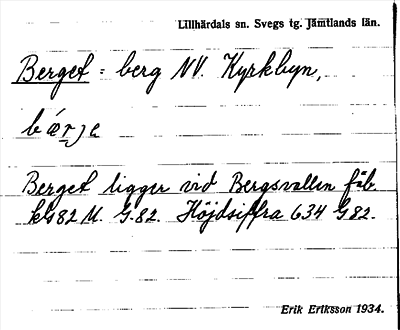 Lillhärdals sn. Svegs tg. Jämtlands län.
Berget = berg NV. Kyrkbyn,
bærje
Berget ligger vid Bergsvallen fäb.
kl982 M. G.82. Höjdsiffra 634 G82.
Erik Eriksson 1934.